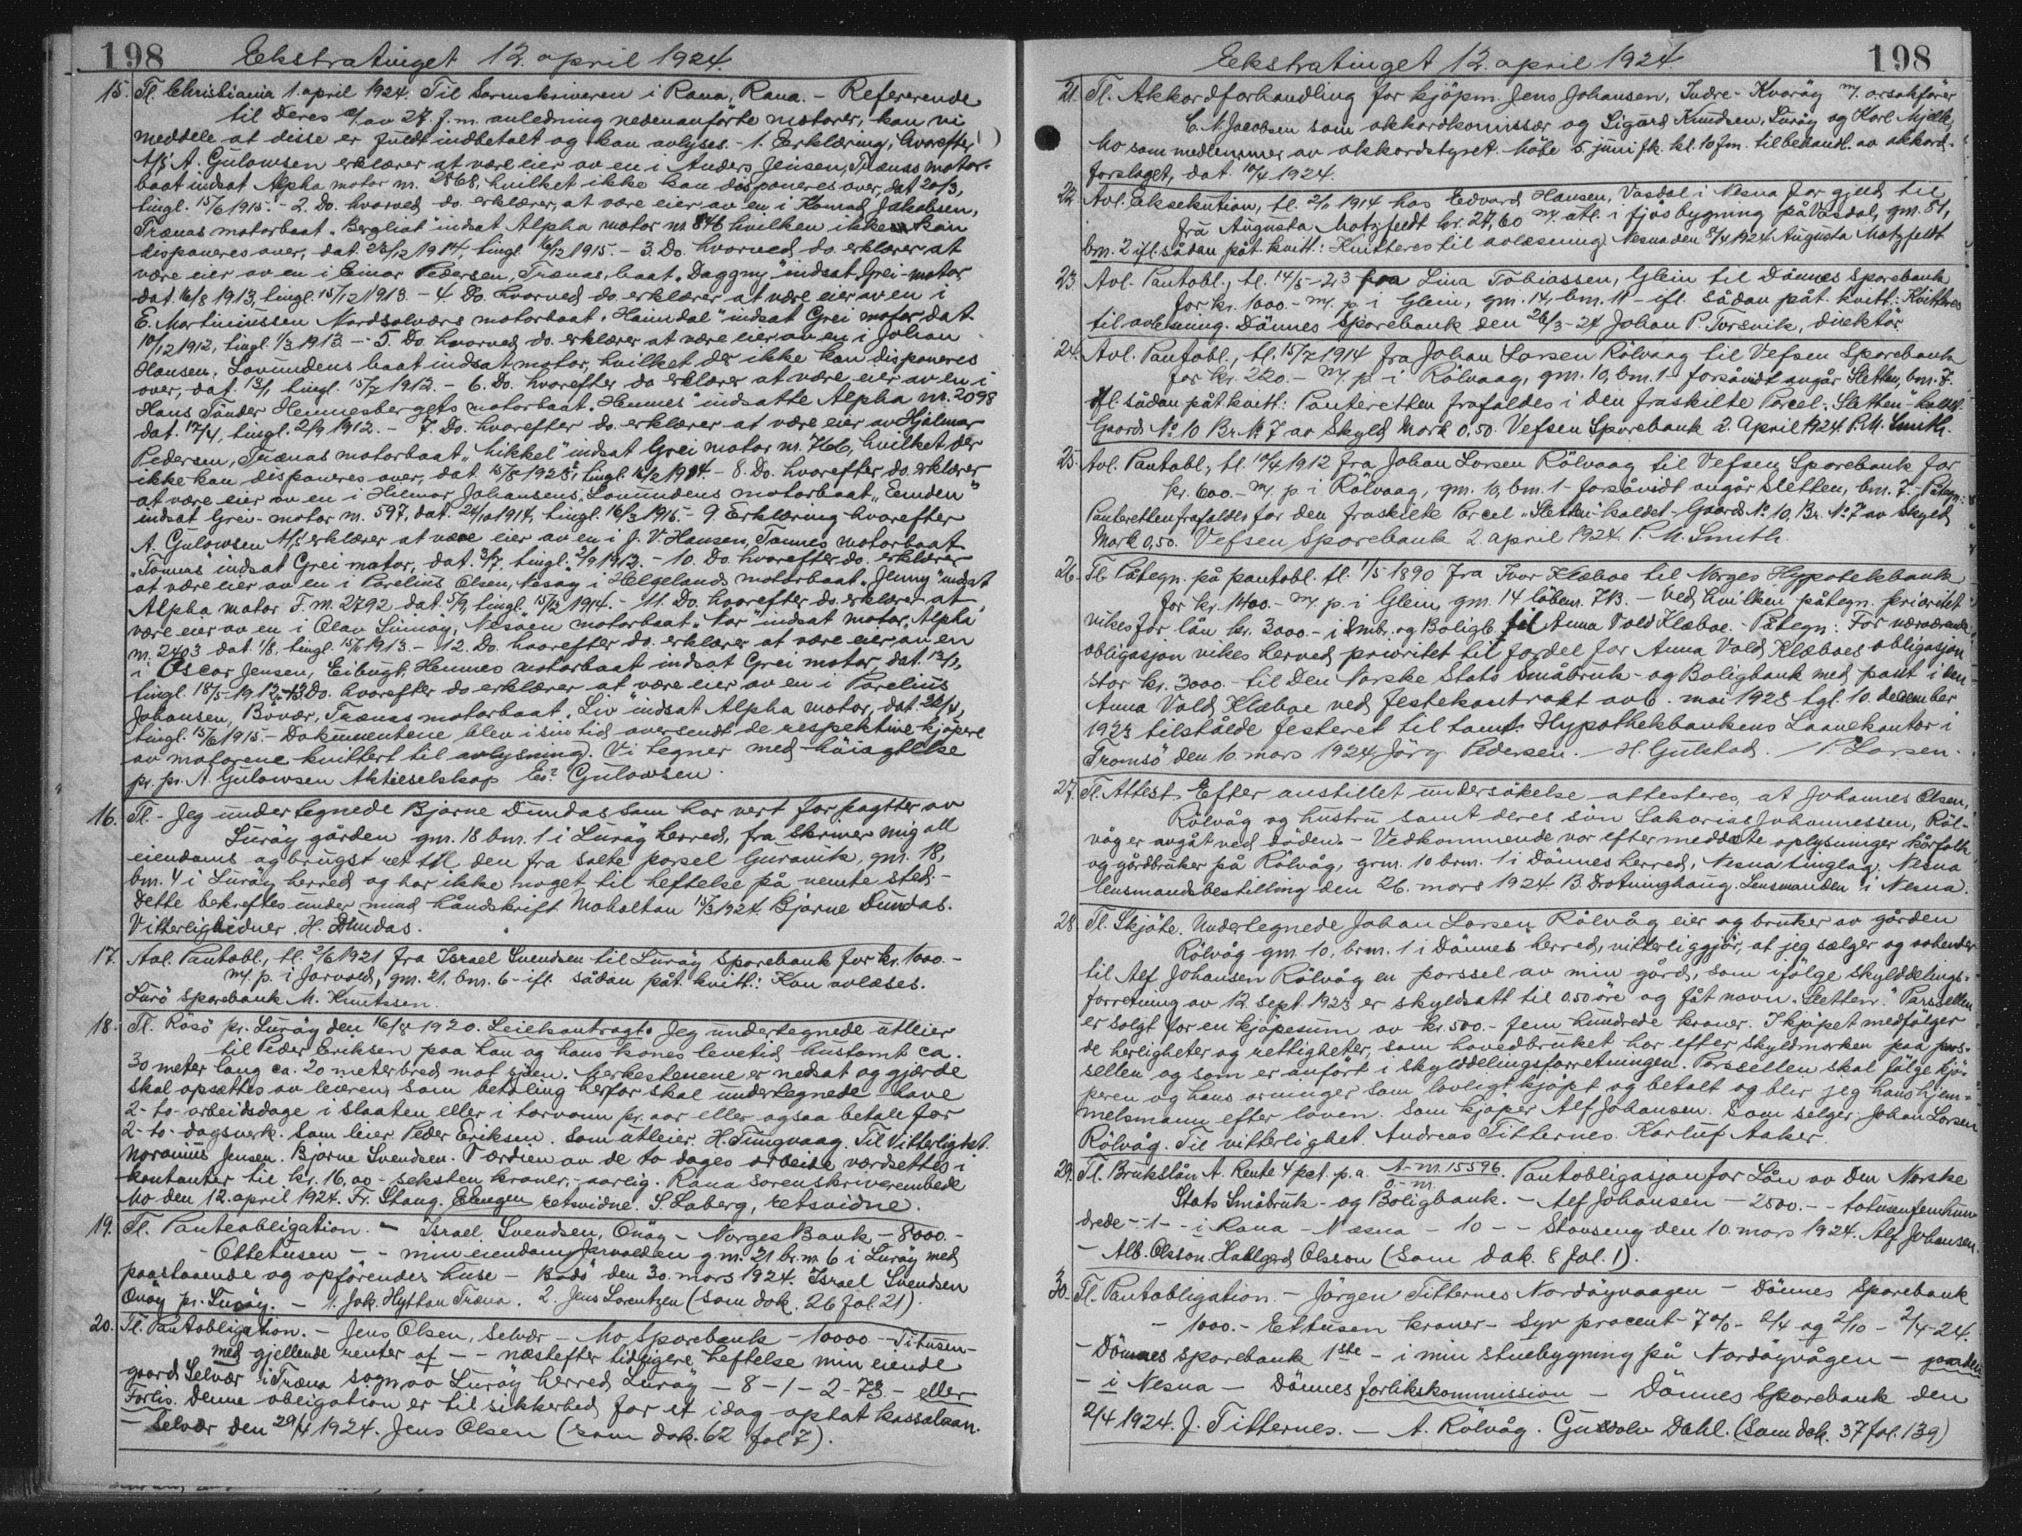 198 Ekstratinget 12. april 1924.
15. Tl. Christiania 1. april 1924. Til Sorenskriveren i Rana, Rana. - Refererende
til Deres av 27. f.m. anledning nedenanførte motorer, kan vi
meddele at disse er fuldt indbetalt og kan avlyses. - 1. Erklæring, hvorefter
A/S A. Gulowsen erklærer at være eier av en i Anders Jensen, Trænas motor-
baat indsat Alpha motor nr. 2868, hvilket ikke kan disponeres over, dat 20/3,
tingl. 15/6 1915. - 2. Do. hvorved do. erklærer, at være eier av en i Konrad Jakobsen,
Trænas motorbaat "Bergliot" indsat Alpha motor nr. 846 hvilken ikke kan
disponeres over, dat. 23/12 1914, tingl. 16/3 1915. - 3. Do. hvorved do. erklærer at
være eier av en i Einar Pedersen, Trænas, baat "Daggny" indsat Grei-motor
dat. 16/8 1913, tingl. 15/12 1913. - 4. Do. hvorved do. erklærer at være eier av en i
E. Martinussen Nordsolværs motorbaat "Haimdal" indsat Grei motor, dat.
10/12 1912, tingl. 1/3 1913. - 5. Do. hvorved do. erklærer at være eier av en i Johan
Hansen, Lovundens baat indsat motor, hvilket der ikke kan disponeres
over, dat. 13/1, tingl. 15/7 1912. - 6. Do. hvorefter do erklærer at være eier av en i
Hans Tander Hennesbergets motorbaat "Hennes" indsatte Alpha nr. 2098
dat. 17/4, tingl. 2/9 1912. - 7. Do. hvorefter do. erklærer at være eier av Hjalmar
Pedersen, Trænas motorbaat "hikkel" indsat Grei motor nr. 766, hvilket der
ikke kan disponeres over, dat. 15/8 1923, tingl. 15/2 1914 - 8. Do. hvorefter do. erklærer
at være eier av en i Hilmar Johansens, Lovundens motorbaat "Emden"
indsat Grei-motor nr. 597, dat. 24/10 1914, tingl. 16/3 1915. - 9. Erklæring hvorefter
A. Gulowsen A/S erklærer at være eier av en i J. V. Hansen, Tonnes motorbaat
"Tonnas" indsat Grei motor, dat. 3/7, tingl. 2/9 1912. - 10. Do. hvorefter do. erklærer
at være eier av en i Parelius Olsen, Aesøy i Helgelands motorbaat "Jenny" indsat
Alpha motor F. nr. 2792 dat. 5/9, tingl. 15/12 1914. - 11. Do. hvorefter do. erklærer at
være eier av en i Olav Sinnøy, Næsøen motorbaat "Nor" indsat motor, Alpha
nr. 2403 dat. 1/8, tingl. 15/9 1913. - 12. Do. hvorefter do. erklærer at være eier av en
i Oscar Jensen, Eibugt, Hennes motorbaat indsat Grei motor, dat. 13/1,
tingl. 18/5-1912. - 13. Do. hvorefter do erklærer at være eier av en i Parelius
Johansen, Bovær, Trænas motorbaat "Liv" indsat Alpha motor, dat. 22/4,
tingl. 15/6 1915. - Dokumentene blev i sin tid oversendt de respektive kjøpere
av motorene kvittert til avlysning. Vi tegner med høiagtelse
pr. pr. A. Gulowsen Aktieselskap Gulowsen.
16. Tl. - Jeg undertegnede Bjarne Dundas som har vert forpagtter av
Lurøy gården gnr. 18 bnr. 1 i Lurøy herred, fra skriver mig all
eiendoms og brugst ret til den fra solte porsel Guravik, gnr. 18,
bnr. 4 i Lurøy herred og har ikke noget til heftelse på nemte sted. -
Dette bekreftes under mind håndskrift Moholtan 15/3 1924. Bjarne Dundas.
Vitterlighidner H. Dundas.
17. Avl. Pantobl., tl. 2/6 1921 fra Israel Svendsen til Lurøy Sparebank for kr. 1000.-
m/. p. i Jarvold, gnr. 21, bnr. 6 - ifl. sådan påt. kvitt.: Kan avlæses.
Lurø Sparebank M. Knutssen.
18. Tl. Rösö pr. Lurøy den 16/8 1920. Leiekontragt. Jeg undertegnede utleier
til Peder Eriksen paa han og hans kones levetid hustomt ca.
30 meter lang ca. 20 meter bred mot sjøen. Merkestenene er nedsat og gjærde
skal opsettes av leieren, som betaling herfor skal undertegnede have
2-to-arbeidsdage i slaaten eller i torvonn pr. aar eller ogsaa betale for
2-to-dagsverk. Som leier Peder Eriksen. Som utleier H. Tungvaag. Til Vitterlighet.
Norainus Jensen. Bjarne Svendsen. Værdien av de to dages arbeide værdsettes i
kontanter til kr. 16,00 - seksten kroner, - aarlig. Rana sorenskriverembede
Mo den 12. april 1924. Fr. Stang. Elingen retsvidne. S. Laberg, retsvidne.
19. Tl. Panteobligation. - Israel Svendsen, Onøy - Norges Bank - 8000.-
- Ottetusen - - min eiendom Jarvolden g.nr. 21 br.nr. 6 i Lurøy med
paastaaende og opførendes huse - Bodø den 30. mars 1924. Israel Svendsen
Onøy pr. Lurøy. - 1. Jak. Hyttan Træna. 2. Jens Lorentzen (som dok. 26 fol. 21).
20. Tl. Pantobligation. - Jens Olsen, Selvær - Mo Sparebank - 10000 - Titusen-
med gjellende renter af - - næstefter tidligere heftelse min eiende
gaard Selvær i Træna sogn av Lurøy herred Lurøy - 8 - 1 - 2 - 73. - eller
Forlis. Denne obligation er til sikkerhed for et idag optat kassalaan.
- Selvær den 29/1 1924. Jens Olsen (som dok. 62 fol 7).
Ekstratinget 12. april 1924. 198
21. Tl. Akkordforhandling for kjøpm. Jens Johansen, Indre-Kvarøy m/. orsakfører
C. N. Jacobsen som akkordkomissær og Sigurd Knudsen, Lurøy og Karl Mjelle,
Mo som medlemmer av akkordstyret. Møte 5. juni fk. kl. 10 fm. til behandl. av akkord-
forslaget, dat. 10/4 1924.
22. Avl. Eksekution, tl. 2/11 1914 hos Edvard Hansen, Vasdal i Nesna for gjeld til
fru Augusta Motzfeldt kr. 27,60 m/. utl. i fjøsbygning på Vasdal, gnr. 81,
bnr. 2 ifl. sådan påt. kvitt: Kvitteres til avlæsning Nesna den 8/4 1924 Augusta Motzfeldt
23. Avl. Pantobl., tl. 14/5-23 fra Lina Tobiassen, Glein til Dønnes Sparebank
for kr. 1000 - m/. p. i Glein, gnr. 14, bnr. 11 - ifl. sådan påt. kvitt.: Kvitteres
til avlesning. Dønnes Sparebank den 26/3-24 Johan P. Forsvik, direktør
24. Avl. Pantobl., tl. 15/7 1914 fra Johan Larsen Rölvaag til Vefsen Sparebank
for kr. 220.- m/. p. i Rölvaag, gnr. 10, bnr. 1 - forsåvidt angår Sletten, bnr. 7.
ifl. sådan påt. kvitt: Panteretten frafaldes i den fraskilte Parcel "Sletten" kaldet.
Gaards No 10 Br No 7 av Skyld Mark 0,50. Vefsen Sparebank 2. April 1924. P.M. Smith.
25. Avl. Pantobl., tl. 10/4 1912 fra Johan Larsen Rölvaag til Vefsen Sparebank for
kr. 600.- m/. p. i Rölvaag, gnr. 10, bnr. 1 - forsåvidt angår Sletten, bnr. 7 - Påtegn:
Panteretten frafaldes for den fraskilte Parcel "Sletten" kaldet - Gaards No 10, Br. No 7 av Skyld
Mark 0,50. Vefsen Sparebank 2. april 1924. P. M. Smith.
26. Tl. Påtegn. på pantobl. tl. 1/5 1890 fra Ivar Klæboe til Norges Hypotekbank
for kr. 1400.- m/. p. i Glein, gnr. 14 löbenr. 713. - Ved hvilken påtegn. prioritet
vikes for lån kr. 3000 - i Smb. og Boligb. til Anna Vold Klæboe. - Påtegn: For nærværende
obligasjon vikes herved prioritet til fordel for Anna Vold Klæboes obligasjon
stor kr. 3000.- til Den Norske Stats Småbruk- og Boligbank med pant i den
Anna Vold Klæboe ved festekontrakt av 6. mai 1923 tgl. 10. december
1923 tilståede festeret til tomt. Hypothekbankens Laanekontor i
Tromsø den 10 mars 1924 Jørg. Pedersen. H. Gulstad. P. Larsen.
27. Tl. Attest. Efter anstillet undersøkelse attesteres, at Johannes Olsen,
Rölvåg og hustru samt deres sön Sakarias Johannessen, Röl-
våg er avgåt ved döden. - Vedkommende var efter meddelte oplysninger kårfolk
og gårdbruker på Rölvåg, grnr. 10 brnr. 1 i Dönnes herred, Nesna tinglag. Nesna
lensmandsbestilling den 26. mars 1924 B. Drotninghaug. Lensmanden i Nesna.
28. Tl. Skjöte. Undertegnede Johan Larsen Rölvåg eier og bruker av gården
Rölvåg gnr. 10, brnr. 1 i Dönnes herred, vitterliggjör, at jeg sælger og avhender
til Alf Johansen Rölvåg en porssel av min gård, som ifölge skylddelings-
forretning av 12. sept. 1923 er skyldsatt til 0.50 öre og fåt navn "Sletten." Parssellen
er solgt for en kjöpesum av kr. 500.- fem hundrede kroner. I kjöpet medfölger
de herligheter og rettigheter, som hovedbruket har efter skyldmarken paa pars-
sellen og som er anfört i skylddelingsforretningen. Parssellen skal fölge kjö-
peren og hans arvinger som lovligt kjöpt og betalt og blir jeg hans hjem-
melsmann efter loven. Som kjöper Alf Johansen. Som selger: Johan Larsen
Rölvåg. Til vitterlighet. Andreas Titternes. Karluf Aaker.
29. Tl. Brukslån A. Rente 4 pct. p.a. A-nr. 15596 Pantobligasjon for Lån av Den Norske
O-nr.
Stats Småbruk- og Boligbank. - Alf Johansen - 2500. - - totusenfemhun
drede - - 1 - - i Rana - Næsna - 10 - - Stavseng den 10. mars 1924. Alf Johansen.
- Alb. Olsson. Hallgerd Olsson (som dok. 8 fol. 1).
30. Tl. Pantobligation. - Jörgen Titternes Nordöyvaagen - Dönnes Sparebank
- 1000.- Ettusen kroner - Syv procent - 7 % - 2/4 og 2/10 - 2/4-24.
- Dönnes Sparebank 1ste - i min stuebygning på Nordöyvågen - gaarden
- i Nesna - Dönnes forlikskommission - Dönnes Sparebank den
2/4 1924. J. Titternes. - A. Rölvåg. Gustolv Dahl. (som dok. 37 fol. 139)